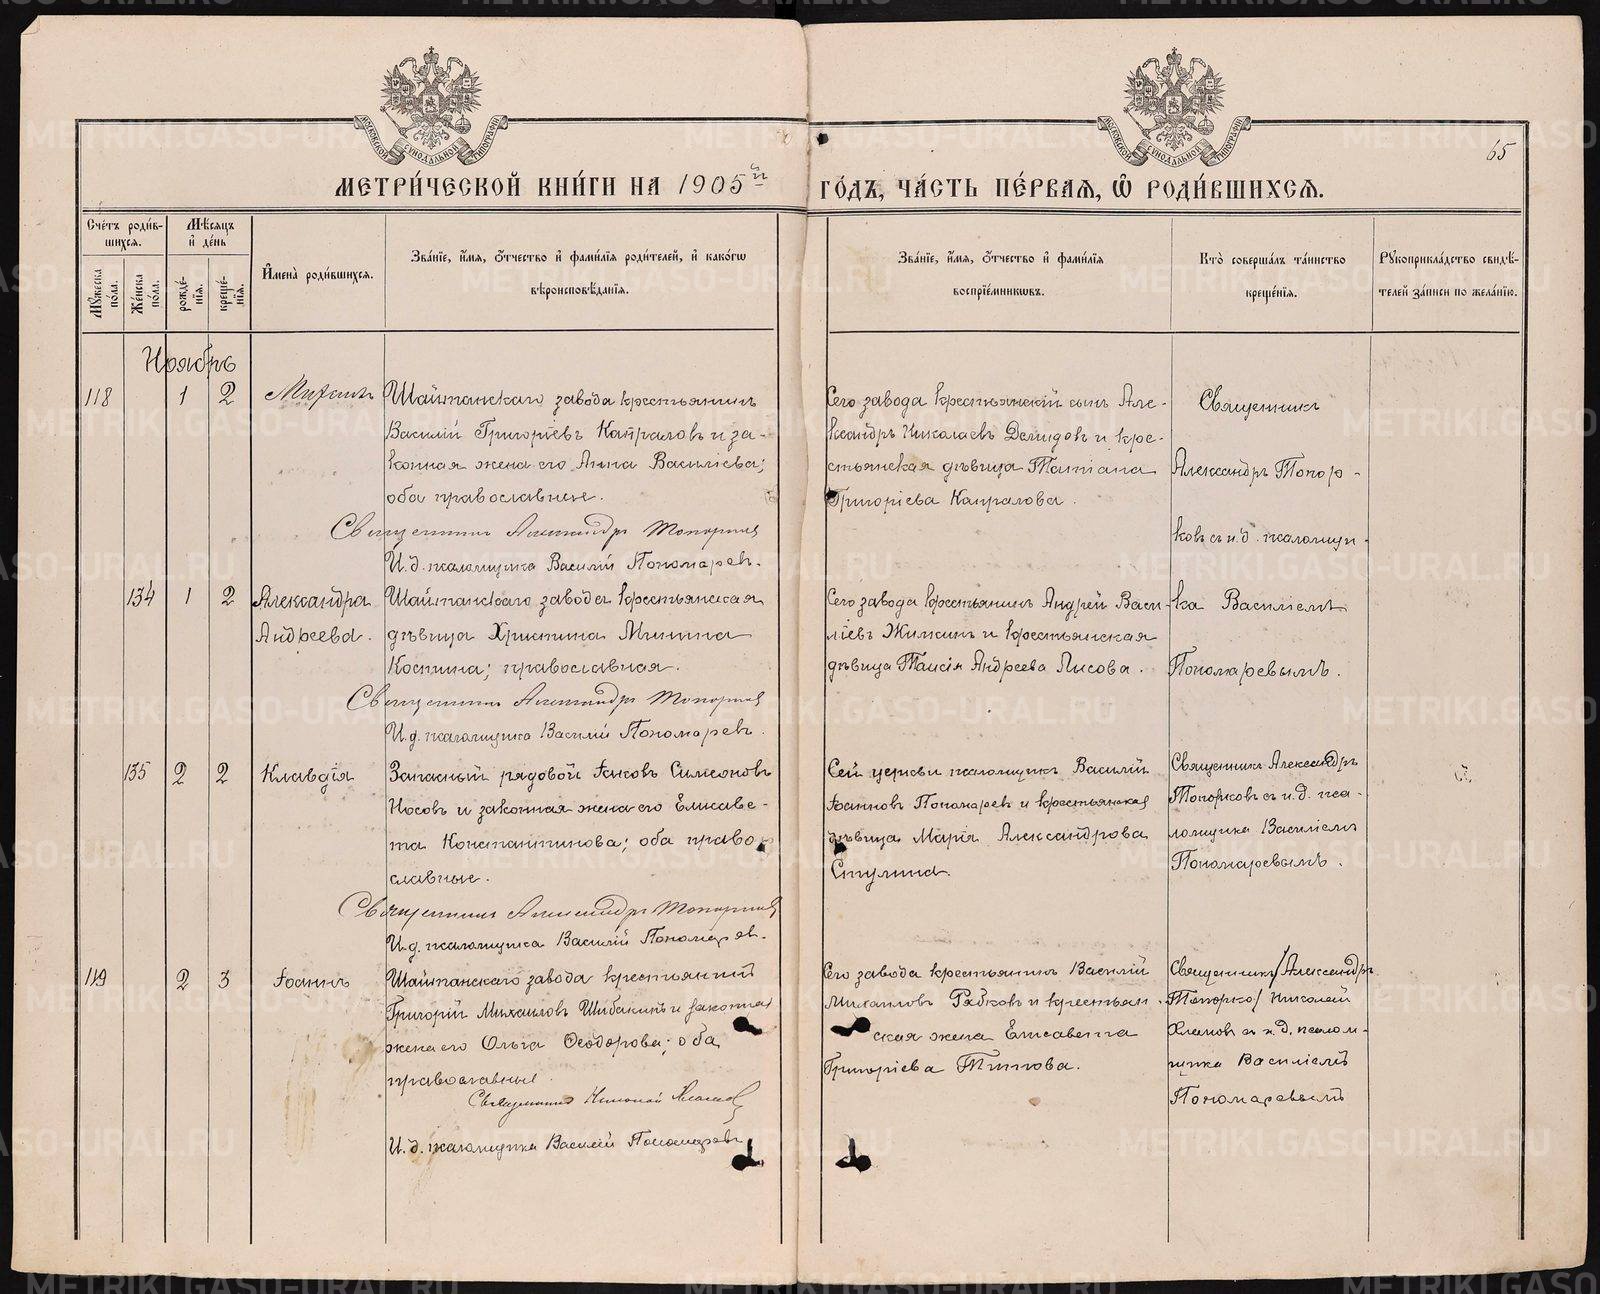 МЕТРИ́ЧЕСКОЙ КНИ́ГИ НА 1905й
ГО́ДЪ, ЧА́СТЬ ПЕ́РВАѦ, Ѿ РОДИ́ВШИХСѦ.
65
Сче́тъ роди́в-
шихсѧ.
Мѣ́сѧцъ
и҆ де́нь
Мꙋ́жеска
по́ла.
Же́нска
по́ла.
рожде́-
нїѧ.
креще́-
нїѧ.
И҆мена̀ роди́вшихсѧ.
Зва́нїе, и҆́мѧ, ѻ҆́тчество и҆ фами́лїѧ роди́телей, и҆ како́гѡ
вѣроисповѣ́данїѧ.
Зва́нїе, и҆́мѧ, ѻ҆́тчество и҆ фами́лїѧ
воспрїе́мникѡвъ.
Кто̀ соверша́лъ та́инство
креще́нїѧ.
Рꙋкоприкла́дство свидѣ́-
телей за́писи по жела́нїю.
Ноябрь
118 1 2 Михаилъ
Шайтанскаго завода крестьянинъ
Василій Григоріевъ Капраловъ и за-
конная жена его Анна Василіева;
оба православные.
Священникъ Александръ Топорковъ
И.д. псаломщика Василій Пономаревъ.
Сего завода крестьянскій сынъ Але-
ксандръ Николаевъ Демидовъ и кре-
стьянская дѣвица Татіана
Григоріева Капралова.
Священникъ
Александръ Топор-
ковъ съ и.д. псаломщи-
134 1 2 Александра
Андреева.
Шайтанскаго завода крестьянская
дѣвица Христина Минина
Костина; православная.
Священникъ Александръ Топорковъ
И.д. псаломщика Василій Пономаревъ.
Сего завода крестьянинъ Андрей Васи-
ліевъ Жимкинъ и крестьянская
дѣвица Таисія Андреева Лисова.
ка Василіемъ
Пономаревымъ.
135 2 2 Клавдія
Запасный рядовой Іаковъ Симеоновъ
Носовъ и законная жена его Елисаве-
та Константинова; оба право-
славные.
Священникъ Александръ Топорковъ
И.д. псаломщика Василій Пономаревъ.
Сей церкви псаломщикъ Василій
Іоанновъ Пономаревъ и крестьянская
дѣвица Марія Александрова
Ступина.
Священникъ Александръ
Топорковъ съ и.д. пса-
ломщика Василіемъ
Пономаревымъ.
119 2 3 Іоаннъ
Шайтанскаго завода крестьянинъ
Григорій Михаиловъ Шибакинъ и законная
жена его Ольга Ѳеодорова; оба
православные.
Священникъ Николай
И.д. псаломщика Василій Пономаревъ
Сего завода крестьянинъ Василій
Михаиловъ Рябковъ и крестьян-
ская жена Елисавета
Григоріева Титова.
Священникъ /Александръ
Топорко/ Николай
съ и.д. псалом-
щика Василіемъ
Пономаревымъ
METRIKI.GASO-URAL.RU